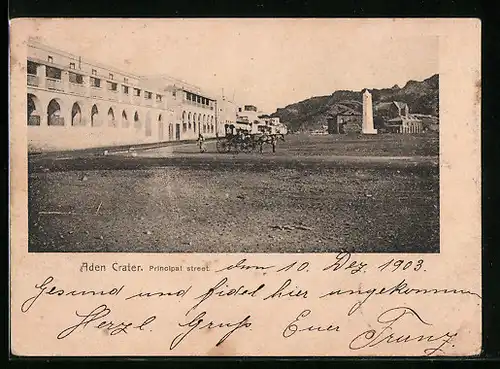 Aden Crater. Principal street. den 10. Dez. 1903.
Gesund und fidel hier angekommen
Herzl. Gruß Euer Franz.